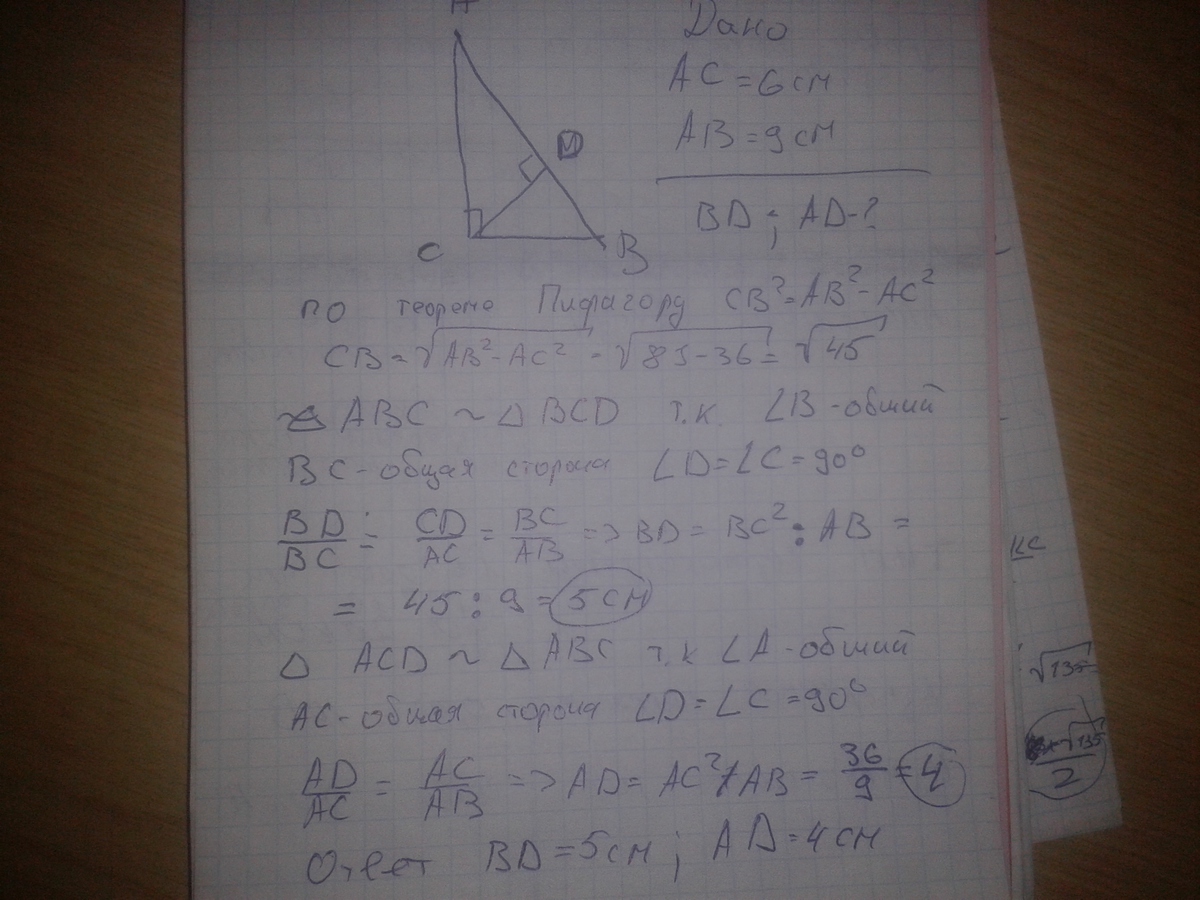 A
Дано
AC = 6 см
AB = 9 см
BD ; AD - ?
D
C
B
по теореме Пифагору CB² = AB² - AC²
CB = √AB² - AC² = √81 - 36 = √45
△ ABC ~ △ BCD т.к ∠B - общий
BC - общая сторона ∠D = ∠C = 90°
BD/BC = CD/AC = BC/AB => BD = BC² : AB =
= 45 : 9 = 5 см
△ ACD ~ △ ABC т.к ∠A - общий
AC - общая сторона ∠D = ∠C = 90°
AD/AC = AC/AB => AD = AC² / AB = 36/9 = 4
Ответ BD = 5 см ; AD = 4 см
кс
√135
√135/2